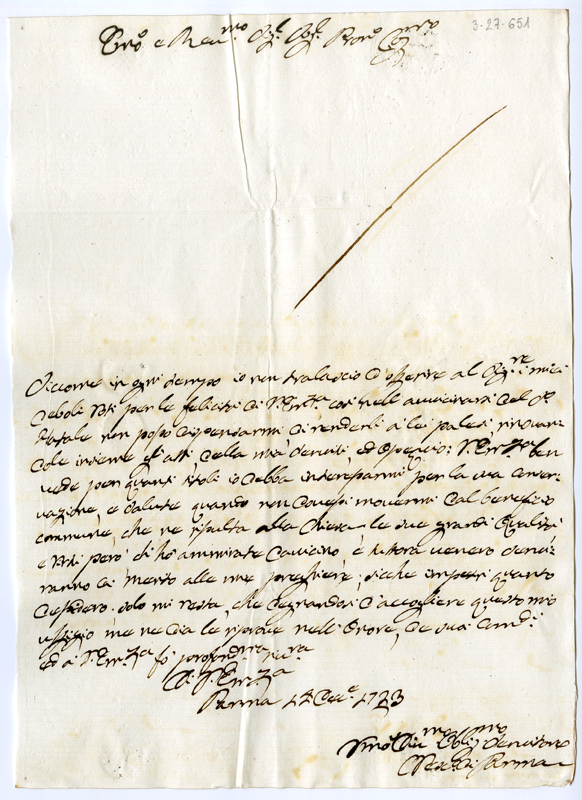 3-27-651
Em.o e Reu.mo Sig.r Sig.r Pron.o
Siccome in ogni tempo io non tralascio d'offerire al Sig.re i miei
deboli voti per le felicità di V. Em.za così nell'avvicinarsi del S.
Natale non posso dispensarmi di renderli a lei palesi, rinovan
dole insieme gl'atti della mia servitù, ed ossequio: V. Em.za ben
vede per quanti titoli io debba interessarmi per la sua conser
vazione, e salute quando non dovessi movermi dal beneficio
commune, che ne risulta alla Chiesa le sue grandi Qualità
e Voti però ho ammirate davicino e tuttora venero servi
ranno di merito alle mie preghiere; sicche impetri quanto
desidero. Solo mi resta, che degnandosi d'accogliere questo mio
uffizio me ne dia le riprove nell'onore, de suoi Com.di
ed a V. Em.za fò profond.ma riu.za
Di V. Em.za
Parma 14 Dec.e 1723
Vmo Diu.mo Obli.mo Seruitore
Parma